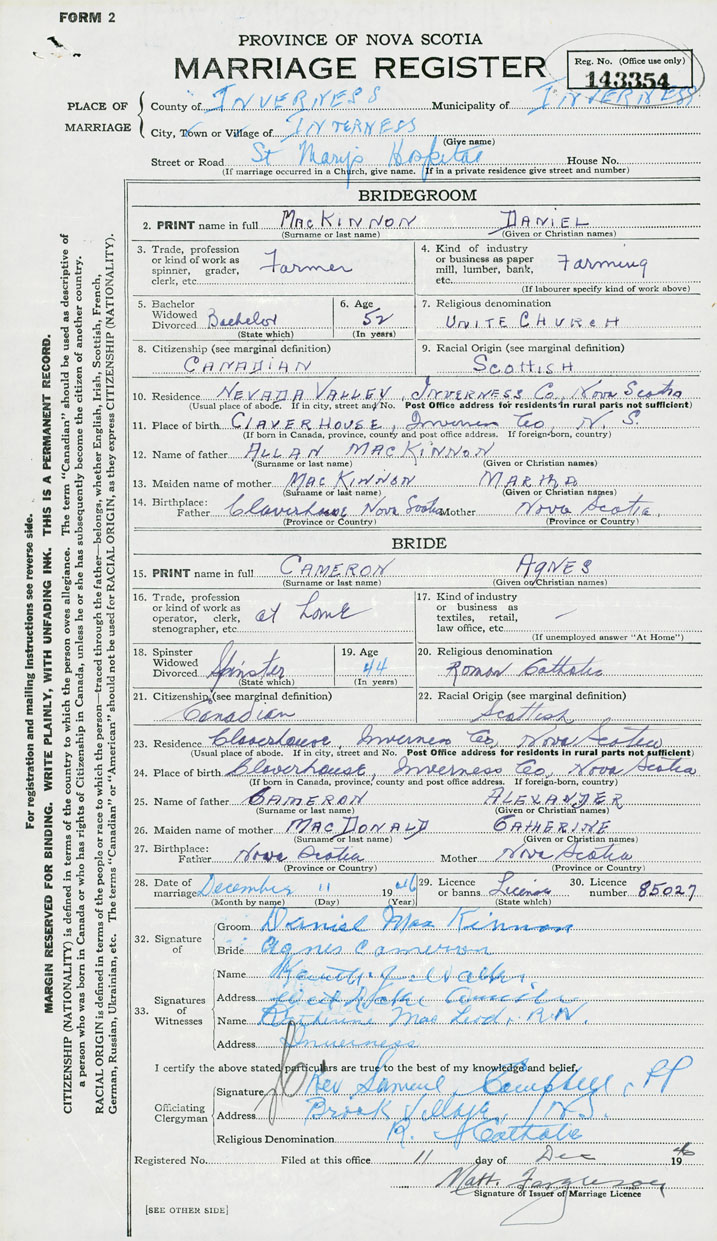 FORM 2
PROVINCE OF NOVA SCOTIA
MARRIAGE REGISTER
Reg. No. (Office use only)
143354
PLACE OF MARRIAGE
County of INVERNESS Municipality of INVERNESS
City, Town or Village of INTERNESS
(Give name)
Street or Road St Mary's Hospital House No.
(If marriage occurred in a Church, give name. If in a private residence give street and number)
BRIDEGROOM
2. PRINT name in full MACKINNON DANIEL
(Surname or last name) (Given or Christian names)
3. Trade, profession or kind of work as spinner, grader, clerk, etc. Farmer
4. Kind of industry or business as paper mill, lumber, bank, etc. Farming
(If labourer specify kind of work above)
5. Bachelor Widowed Divorced Bachelor
(State which)
6. Age 52
(In years)
7. Religious denomination
UNITE CHURCH
8. Citizenship (see marginal definition)
CANADIAN
9. Racial Origin (see marginal definition)
SCOTTISH
10. Residence NEVADA VALLEY, INVERNESS CO, NOVA SCOTIA
(Usual place of abode. If in city, street and No. Post Office address for residents in rural parts not sufficient)
11. Place of birth CLAVERHOUSE, Inverness Co, N. S.
(If born in Canada, province, county and post office address. If foreign-born, country)
12. Name of father ALLAN MACKINNON
(Surname or last name) (Given or Christian names)
13. Maiden name of mother MACKINNON MARTHA
(Surname or last name) (Given or Christian names)
14. Birthplace: Father Claverhouse Nova Scotia Mother Nova Scotia,
(Province or Country) (Province or Country)
BRIDE
15. PRINT name in full CAMERON AGNES
(Surname or last name) (Given or Christian names)
16. Trade, profession or kind of work as operator, clerk, stenographer, etc. at home
17. Kind of industry or business as textiles, retail, law office, etc. —
(If unemployed answer "At Home")
18. Spinster Widowed Divorced Spinster
(State which)
19. Age 44
(In years)
20. Religious denomination
Roman Catholic
21. Citizenship (see marginal definition)
Canadian
22. Racial Origin (see marginal definition)
Scottish
23. Residence Claverhouse, Inverness Co, Nova Scotia
(Usual place of abode. If in city, street, and No. Post Office address for residents in rural parts not sufficient)
24. Place of birth Claverhouse, Inverness Co, Nova Scotia
(If born in Canada, province, county and post office address. If foreign-born, country)
25. Name of father CAMERON ALEXANDER
(Surname or last name) (Given or Christian names)
26. Maiden name of mother MACDONALD CATHERINE
(Surname or last name) (Given or Christian names)
27. Birthplace: Father Nova Scotia Mother Nova Scotia
(Province or Country) (Province or Country)
28. Date of marriage December 11 1946
(Month by name) (Day) (Year)
29. Licence or banns License
(State which)
30. Licence number 85027
32. Signature of
Groom Daniel MacKinnon
Bride Agnes Cameron
33. Signatures of Witnesses
Name
Address
Name Catherine MacLeod, R.N.
Address Inverness
I certify the above stated particulars are true to the best of my knowledge and belief,
Officiating Clergyman
Signature Rev Samuel Campbell, PP
Address Brook Village, N.S.
Religious Denomination R. Catholic
Registered No. Filed at this office 11 day of Dec 1946
Matt. Ferguson
Signature of Issuer of Marriage Licence
[SEE OTHER SIDE]
For registration and mailing instructions see reverse side.
MARGIN RESERVED FOR BINDING. WRITE PLAINLY, WITH UNFADING INK. THIS IS A PERMANENT RECORD.
CITIZENSHIP (NATIONALITY) is defined in terms of the country to which the person owes allegiance. The term "Canadian" should be used as descriptive of
a person who was born in Canada or who has rights of Citizenship in Canada, unless he or she has subsequently become the citizen of another country.
RACIAL ORIGIN is defined in terms of the people or race to which the person—traced through the father—belongs, whether English, Irish, Scottish, French,
German, Russian, Ukrainian, etc. The terms "Canadian" or "American" should not be used for RACIAL ORIGIN, as they express CITIZENSHIP (NATIONALITY).